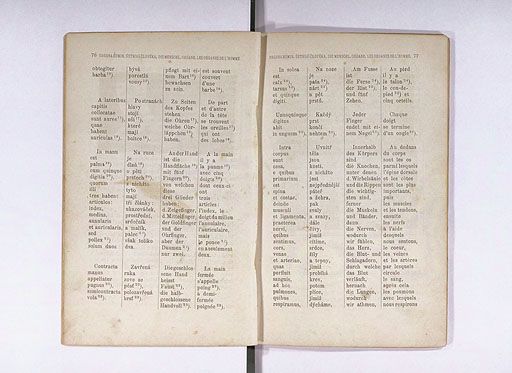 76 ORGANA HOMIN. ÚSTROJÍ ČLOVĚKA. DIE MENSCHL. ORGANE. LES ORGANES DE L'HOMME.
obtegitur bývá pflegt mit ei- est souvent
barba porostlá nem Bart couvert
vousy bewachsen d'une
zu sein. barbe
A lateribus Postranách Zu Seiten De part
capitis hlavy des Kopfes et d'autre
collocatae stojí stehen de la tête
sunt aures uši die Ohren se trouvent
quae které welche Ohr- les oreilles
habent mají läppchen qui ont
auriculas boltce haben. des lobes
In manu Na ruce An der Hand A la main
est je ist die il y a
palma dlaň Handfläche la paume
cum quinque s píti mit fünf avec cinq
digitis prstech Fingern doigts
quorum z nichžto von welchen dont ceux-ci
illi tyto diese ont
tres habent mají drei Glieder trois
articulos: tři články: haben: articles:
index, ukazováček, d. Zeigefinger, l'index, le
medius, prostřední, d. Mittelfinger, doigt du milieu
annularis srdečník der Goldfinger l'annulaire,
et auricularis, a malík, und der l'auriculaire,
sed palec Ohrfinger, mais
pollex však toliko aber der le pouce
solum duos dva. Daumen en a seulement
nur zwei. deux.
Contracta Zavřená Die geschlos- La main
manus ruka sene Hand fermée
appellatur zove se heisst s'appelle
pugnus pěst Faust poing
semicontracta polozavřená die halb- à demi
vola hrst geschlossene fermée
Handvoll poignée
ORGANA HOMIN. ÚSTROJÍ ČLOVĚKA. DIE MENSCHL. ORGANE. LES ORGANES DE L'HOMME. 77
In solea Na noze Am Fusse Au pied
est je ist il y a
calx pata die Ferse le talon
tarsus nárt der Rist le cou-de-
et quinque a pět und fünf pied et
digiti. prstů. Zehen. cinq orteils.
Unusquisque Každý Jeder Chaque
digitus prst Finger doigt
abit končí endet mit ei- se termine
in unguem nehtem nem Nagel d'un ongle
Intra Uvnitř Innerhalb Au dedans
corpus těla des Körpers du corps
sunt jsou sind sont les os
ossa, kosti, die Knochen, parmi lesquels
e quibus z nichžto unter denen l'épine dorsale
primarium jest d. Wirbelsäule et les côtes
est nejpřednější und die Rippen sont les plus
spina páteř die wichtig- importants,
et costae, a žebra, sten sind, puis
deinde pak ferner les muscles
musculi svaly die Muskeln et les tendons,
et ligamenta, a svazy, und Bänder, ensuite
praeterea dále dann les nerfs
nervi, čivy, die Nerven, à l'aide
quibus jimiž wodurch desquels
sentimus, cítíme, wir fühlen, nous sentons,
cor, srdce, das Herz, le coeur,
venae žíly, die Blut- und les veines
et arteriae, a tepny, Schlagadern, et les artères
quas jimiž durch welche par lesquels
perfluit probíhá das Blut circule
sanguis, krev, verläuft, le sang,
ad hoc potom hernach après cela
pulmones, plíce, die Lungen, les poumons
quibus jimiž wodurch avec lesquels
respiramus, dýcháme, wir athmen, nous respirons